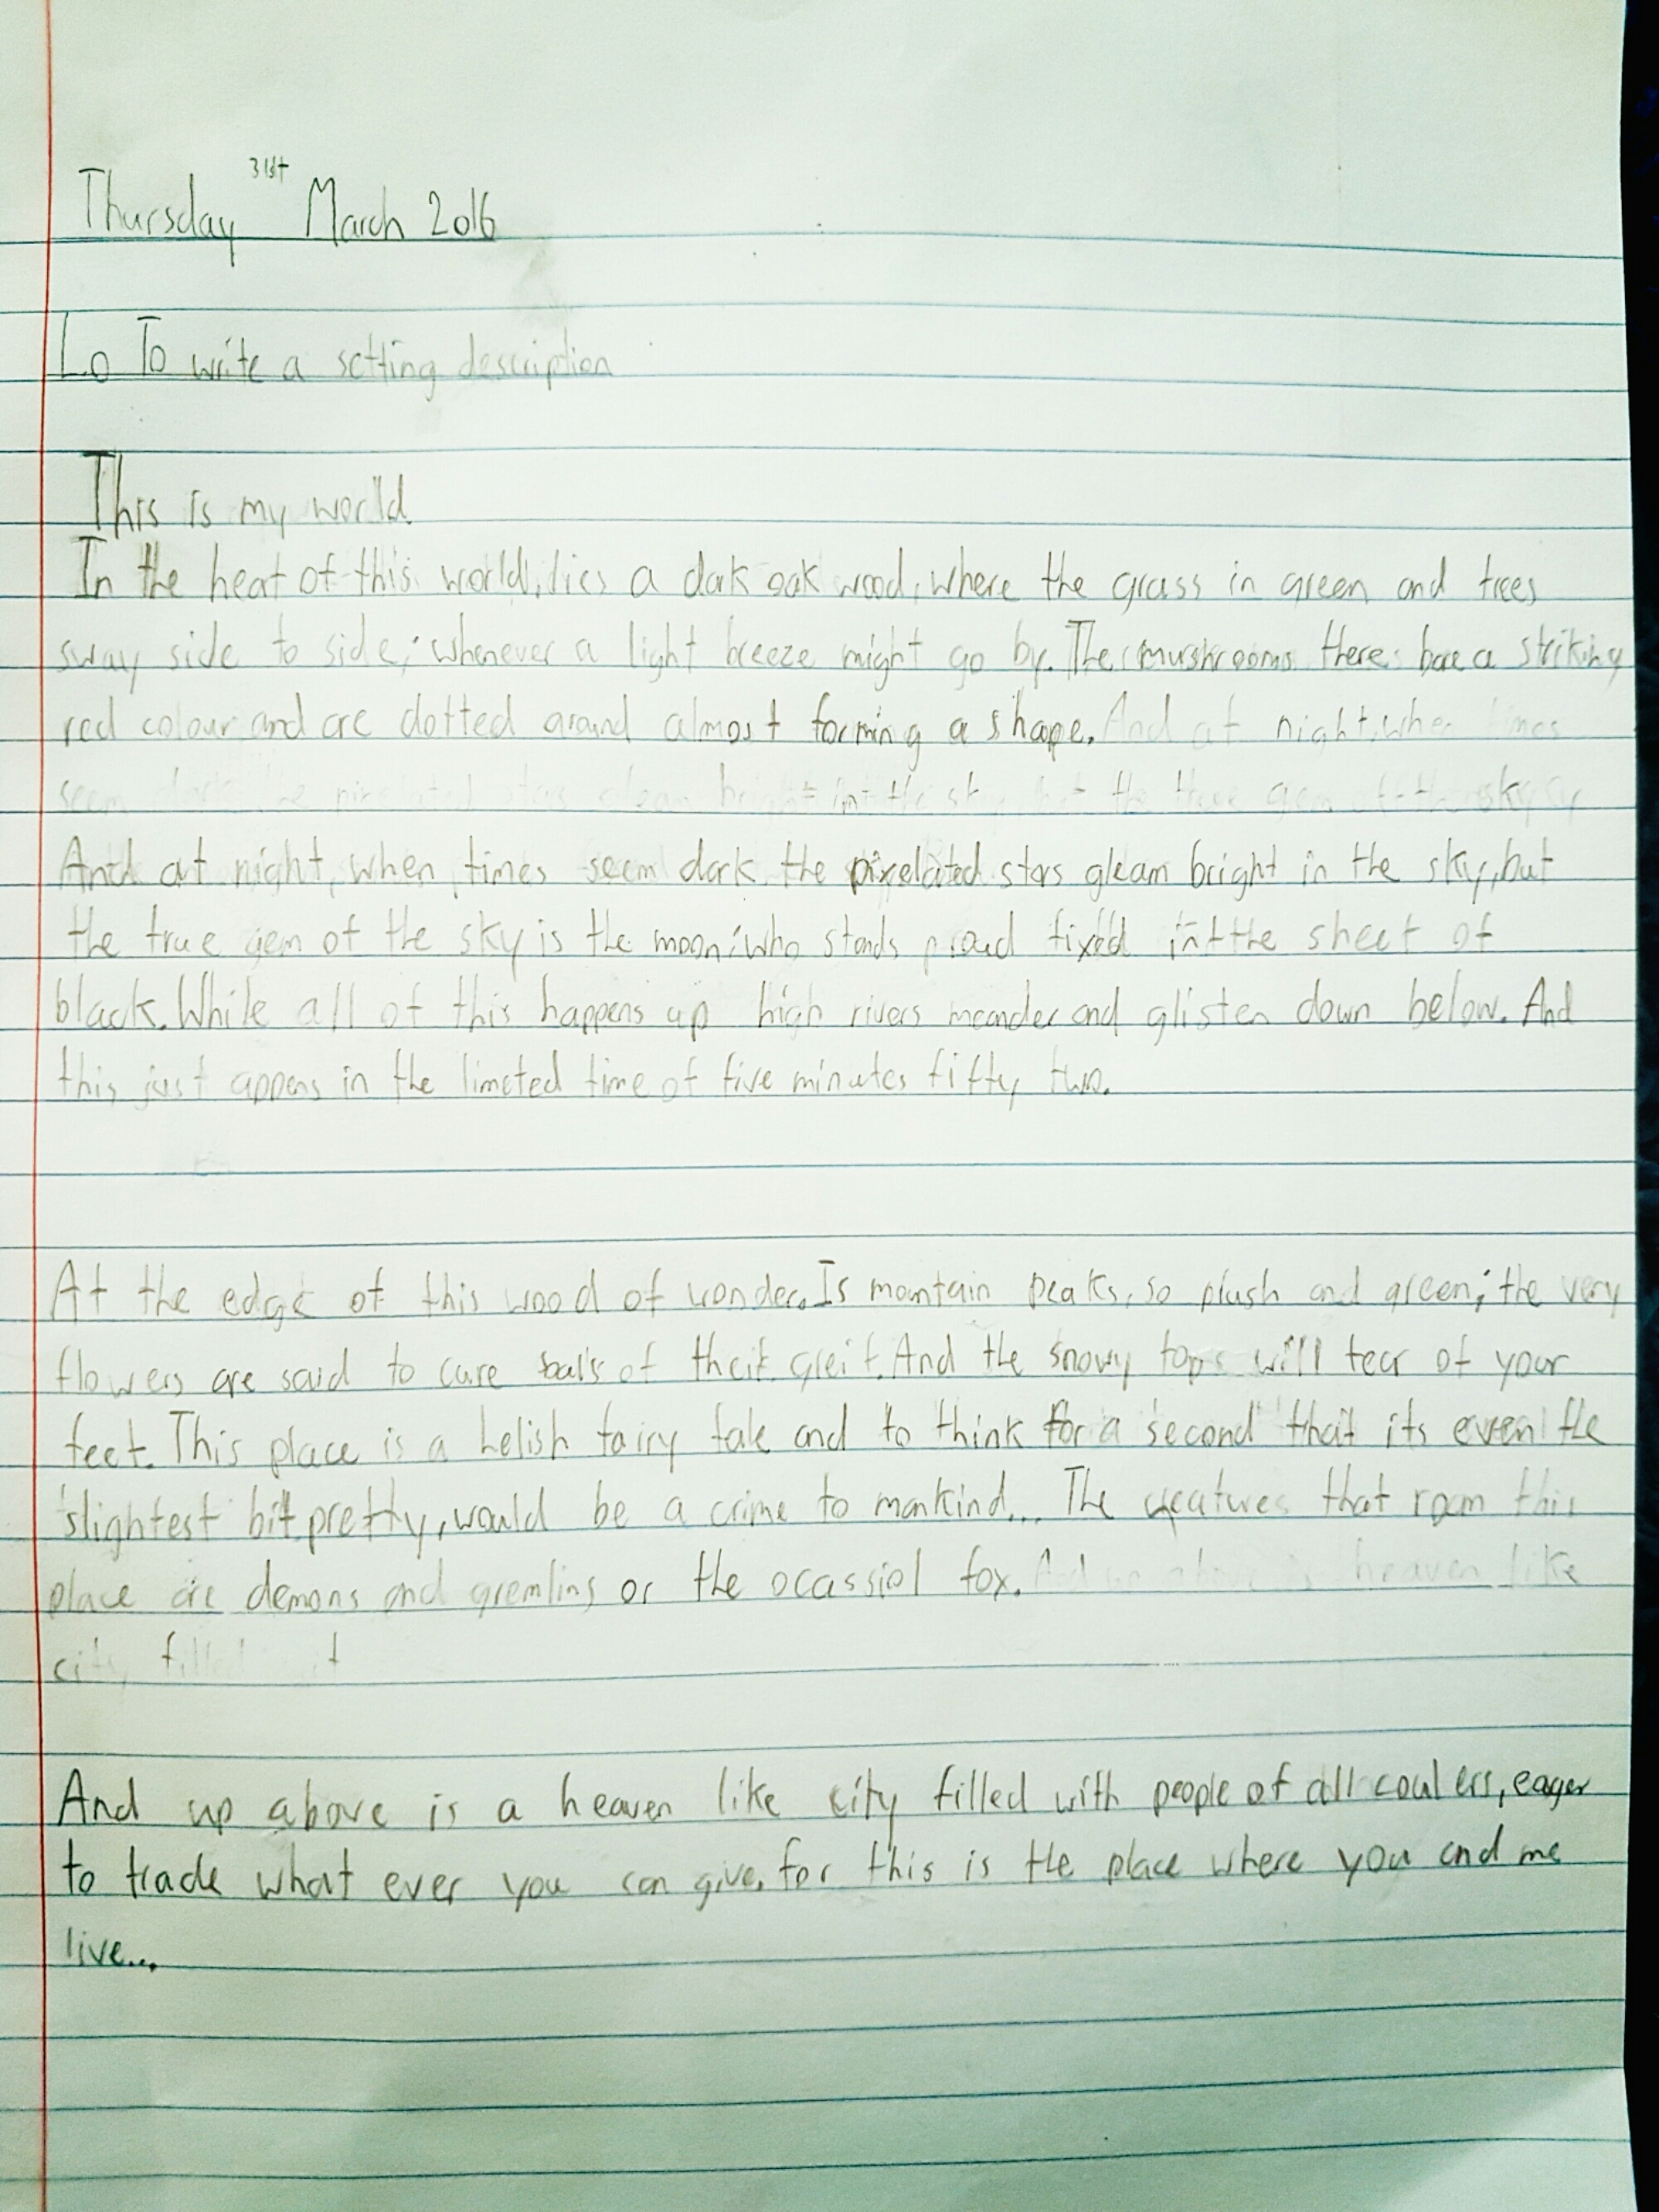 31st
Thursday March 2016
Lo To write a setting description
This is my world
In the heat of this world, lies a dark oak wood, where the grass in green and trees
sway side to side; whenever a light breeze might go by. The mushrooms there bare a striking
red colour and are dotted around almost forming a shape. And at night, when times
seem dark the pixelated stars gleam bright in the sky but the true gem of the sky
And at night, when times seem dark the pixelated stars gleam bright in the sky, but
the true gem of the sky is the moon; who stands proud fixed in the sheet of
black. While all of this happens up high rivers meander and glisten down below. And
this just appens in the limeted time of five minutes fifty two.
At the edge of this wood of wonder. Is mountain peaks, so plush and green; the very
flowers are said to cure of their greif. And the snowy tops will tear of your
feet. This place is a helish fairy tale and to think for a second that its even the
slightest bit pretty, would be a crime to mankind... The creatures that roam this
place are demons and gremlins or the ocassiol fox. And up above is heaven like
city filled
And up above is a heaven like city filled with people of all coulers, eager
to trade what ever you can give, for this is the place where you and me
live...